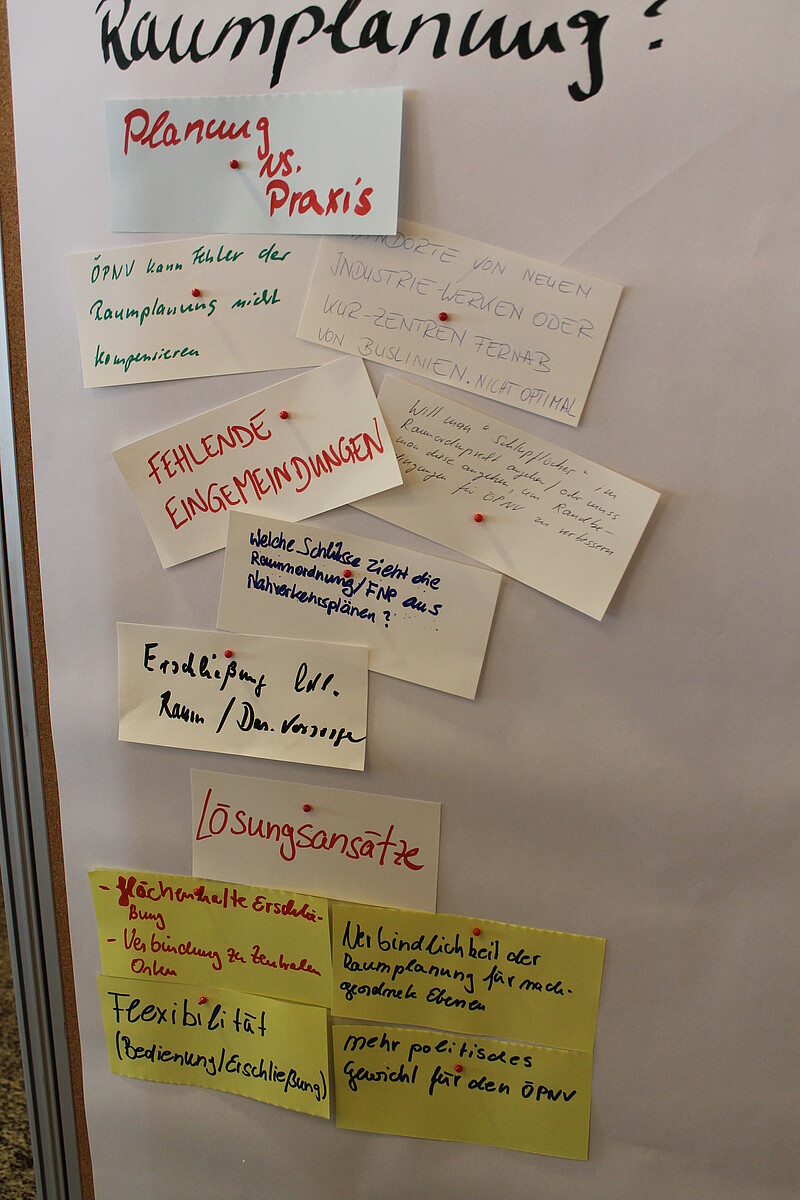 Raumplanung?
Planung
vs.
Praxis
ÖPNV kann Fehler der
Raumplanung nicht
kompensieren
STANDORTE VON NEUEN
INDUSTRIE-WERKEN ODER
KUR-ZENTREN FERNAB
VON BUSLINIEN. NICHT OPTIMAL
FEHLENDE
EINGEMEINDUNGEN
Will man "Schlupflöcher" im
Raumordnungsrecht angehen/oder muss
man diese angehen, um Randbe-
dingungen für ÖPNV zu verbessern
Welche Schlüsse zieht die
Raumordnung/FNP aus
Nahverkehrsplänen?
Erschließung
Raum / Das. Vorsorge
Lösungsansätze
- flächenhafte Erschlie-
ßung
- Verbindung zu Zentralen
Orten
Verbindlichkeit der
Raumplanung für nach-
geordnete Ebenen
Flexibilität
(Bedienung/Erschließung)
mehr politisches
Gewicht für den ÖPNV